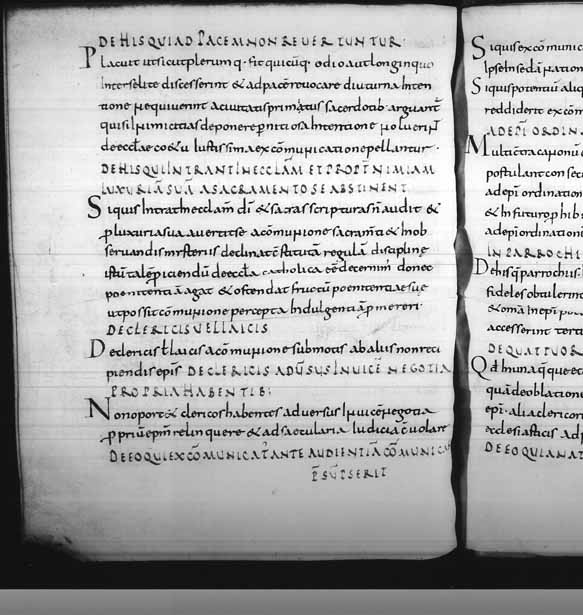 DE HIS QUI AD PACEM NON REVERTUNTUR
Placuit ut sicut plerumq· fit quicūq· odio aut longinqua
inter se lite discesserint & ad pacē revocare diuturna inten
tione nequiverint a civitatis primitus sacerdotib· arguant̄
qui si inimicitias deponere pernitiosa intentione noluerint̄
de eccłae coetu iustissima excōmunicatione pellantur·
DE HIS QUI INTRANT IN ECCLĀM ET PROPT̄ NIMIAM
LUXURIĀ SUĀ A SACRAMENTO SE ABSTINENT
Siquis intrat in ecclam dī & sacras scripturas ñ audit &
p luxuria sua avertit se a cōmunione sacramti & in ob
servandis mysteriis declinat cōstitutā regulā discipline
istū talē piciendū de eccła catholica eē decernim· donec
poenitentiā agat & ostendat fructū poenitentiae suę
ut possit cōmunionē percepta indulgentia pmereri·
DE CLERICIS VEL LAICIS
De clericis ł laicis a cōmunione submotis ab aliis non reci
piendis epīs DE CLERICIS ADŪSUS INVICĒ NEGOTIA
PROPRIA HABENTIB;
Non oport& clericos habentes adversus invicē negotia
pprium epm̄ relinquere & ad saecularia iudicia cōvolare
DE EO QUI EXCŌMUNICAT̄ ANTE AUDIENTIĀ CŌMUNICAR
P̄SUP̄SERIT
Siquis excōmunic
ipse in se dānation
Siquis potentū aliq
reddiderit excōm
ADEPI ORDIN
Multi ctra canonū
postulant con sec
adepi ordination
& in futurop hib
adepi ordinationi
IN PARROCHI
De hisq parrochiis
fideles obtulerin
accesserint terti
DE QUATTUOR
Qd in una qque ec
quā de oblatione
epī· alia clericor
ecclesiasticis ad p
DE EO QUI A NAT